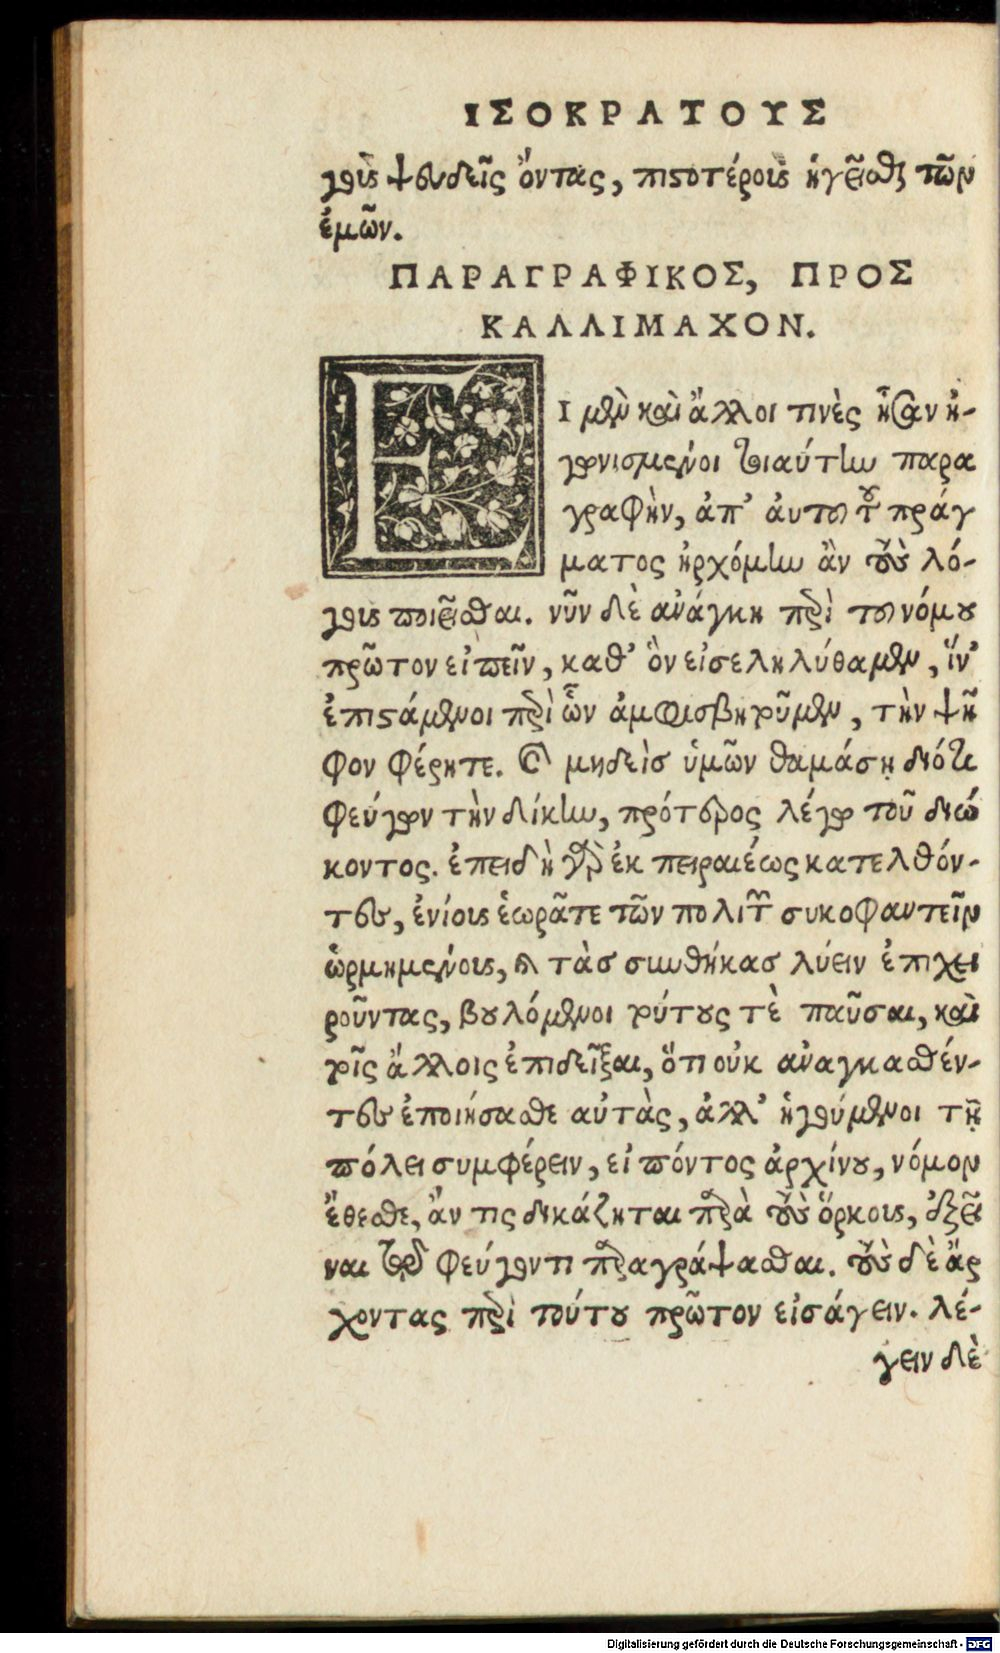 ΙΣΟΚΡΑΤΟΥΣ
γους ψευδεῖς ὄντας, πιστοτέρους ἡγεῖσθε τῶν
ἐμῶν.
ΠΑΡΑΓΡΑΦΙΚΟΣ, ΠΡΟΣ
ΚΑΛΛΙΜΑΧΟΝ.
ΕΙ μὲν καὶ ἄλλοι τινὲς ἦσαν ἠ-
γωνισμένοι τοιαύτην παρα
γραφὴν, ἀπ' ἀυτοῦ τοῦ πράγ
ματος ἠρχόμην ἂν τοὺς λό-
γους ποιεῖσθαι. νῦν δὲ ἀνάγκη περὶ τοῦ νόμου
πρῶτον εἰπεῖν, καθ' ὃν εἰσεληλύθαμεν, ἵν'
ἐπιστάμενοι περὶ ὧν ἀμφισβητοῦμεν, τὴν ψῆ
φον φέρητε. καὶ μηδεὶσ ὑμῶν θαμάσῃ διότι
φεύγων τὴν δίκην, πρότερος λέγω τοῦ διώ
κοντος. ἐπειδὴ γὰρ ἐκ πειραιέως κατελθόν-
τες, ἐνίους ἑωρᾶτε τῶν πολιτῶν συκοφαντεῖν
ὡρμημένους, καὶ τὰσ συνθήκασ λύειν ἐπιχει
ροῦντας, βουλόμενοι τούτους τὲ παῦσαι, καὶ
τοῖς ἄλλοις ἐπιδεῖξαι, ὅτι οὐκ ἀναγκασθέν-
τες ἐποιήσασθε αὐτὰς, ἀλλ' ἡγούμενοι τῇ
πόλει συμφέρειν, εἰπόντος ἀρχίνου, νόμον
ἔθεσθε, ἄν τις δικάζηται παρὰ τοὺς ὅρκους, ἐξεῖ
ναι τῷ φεύγοντι παραγράψασθαι. τοὺς δὲ ἄρ
χοντας περὶ τούτου πρῶτον εἰσάγειν. λέ-
γειν δὲ
Digitalisierung gefördert durch die Deutsche Forschungsgemeinschaft - DFG